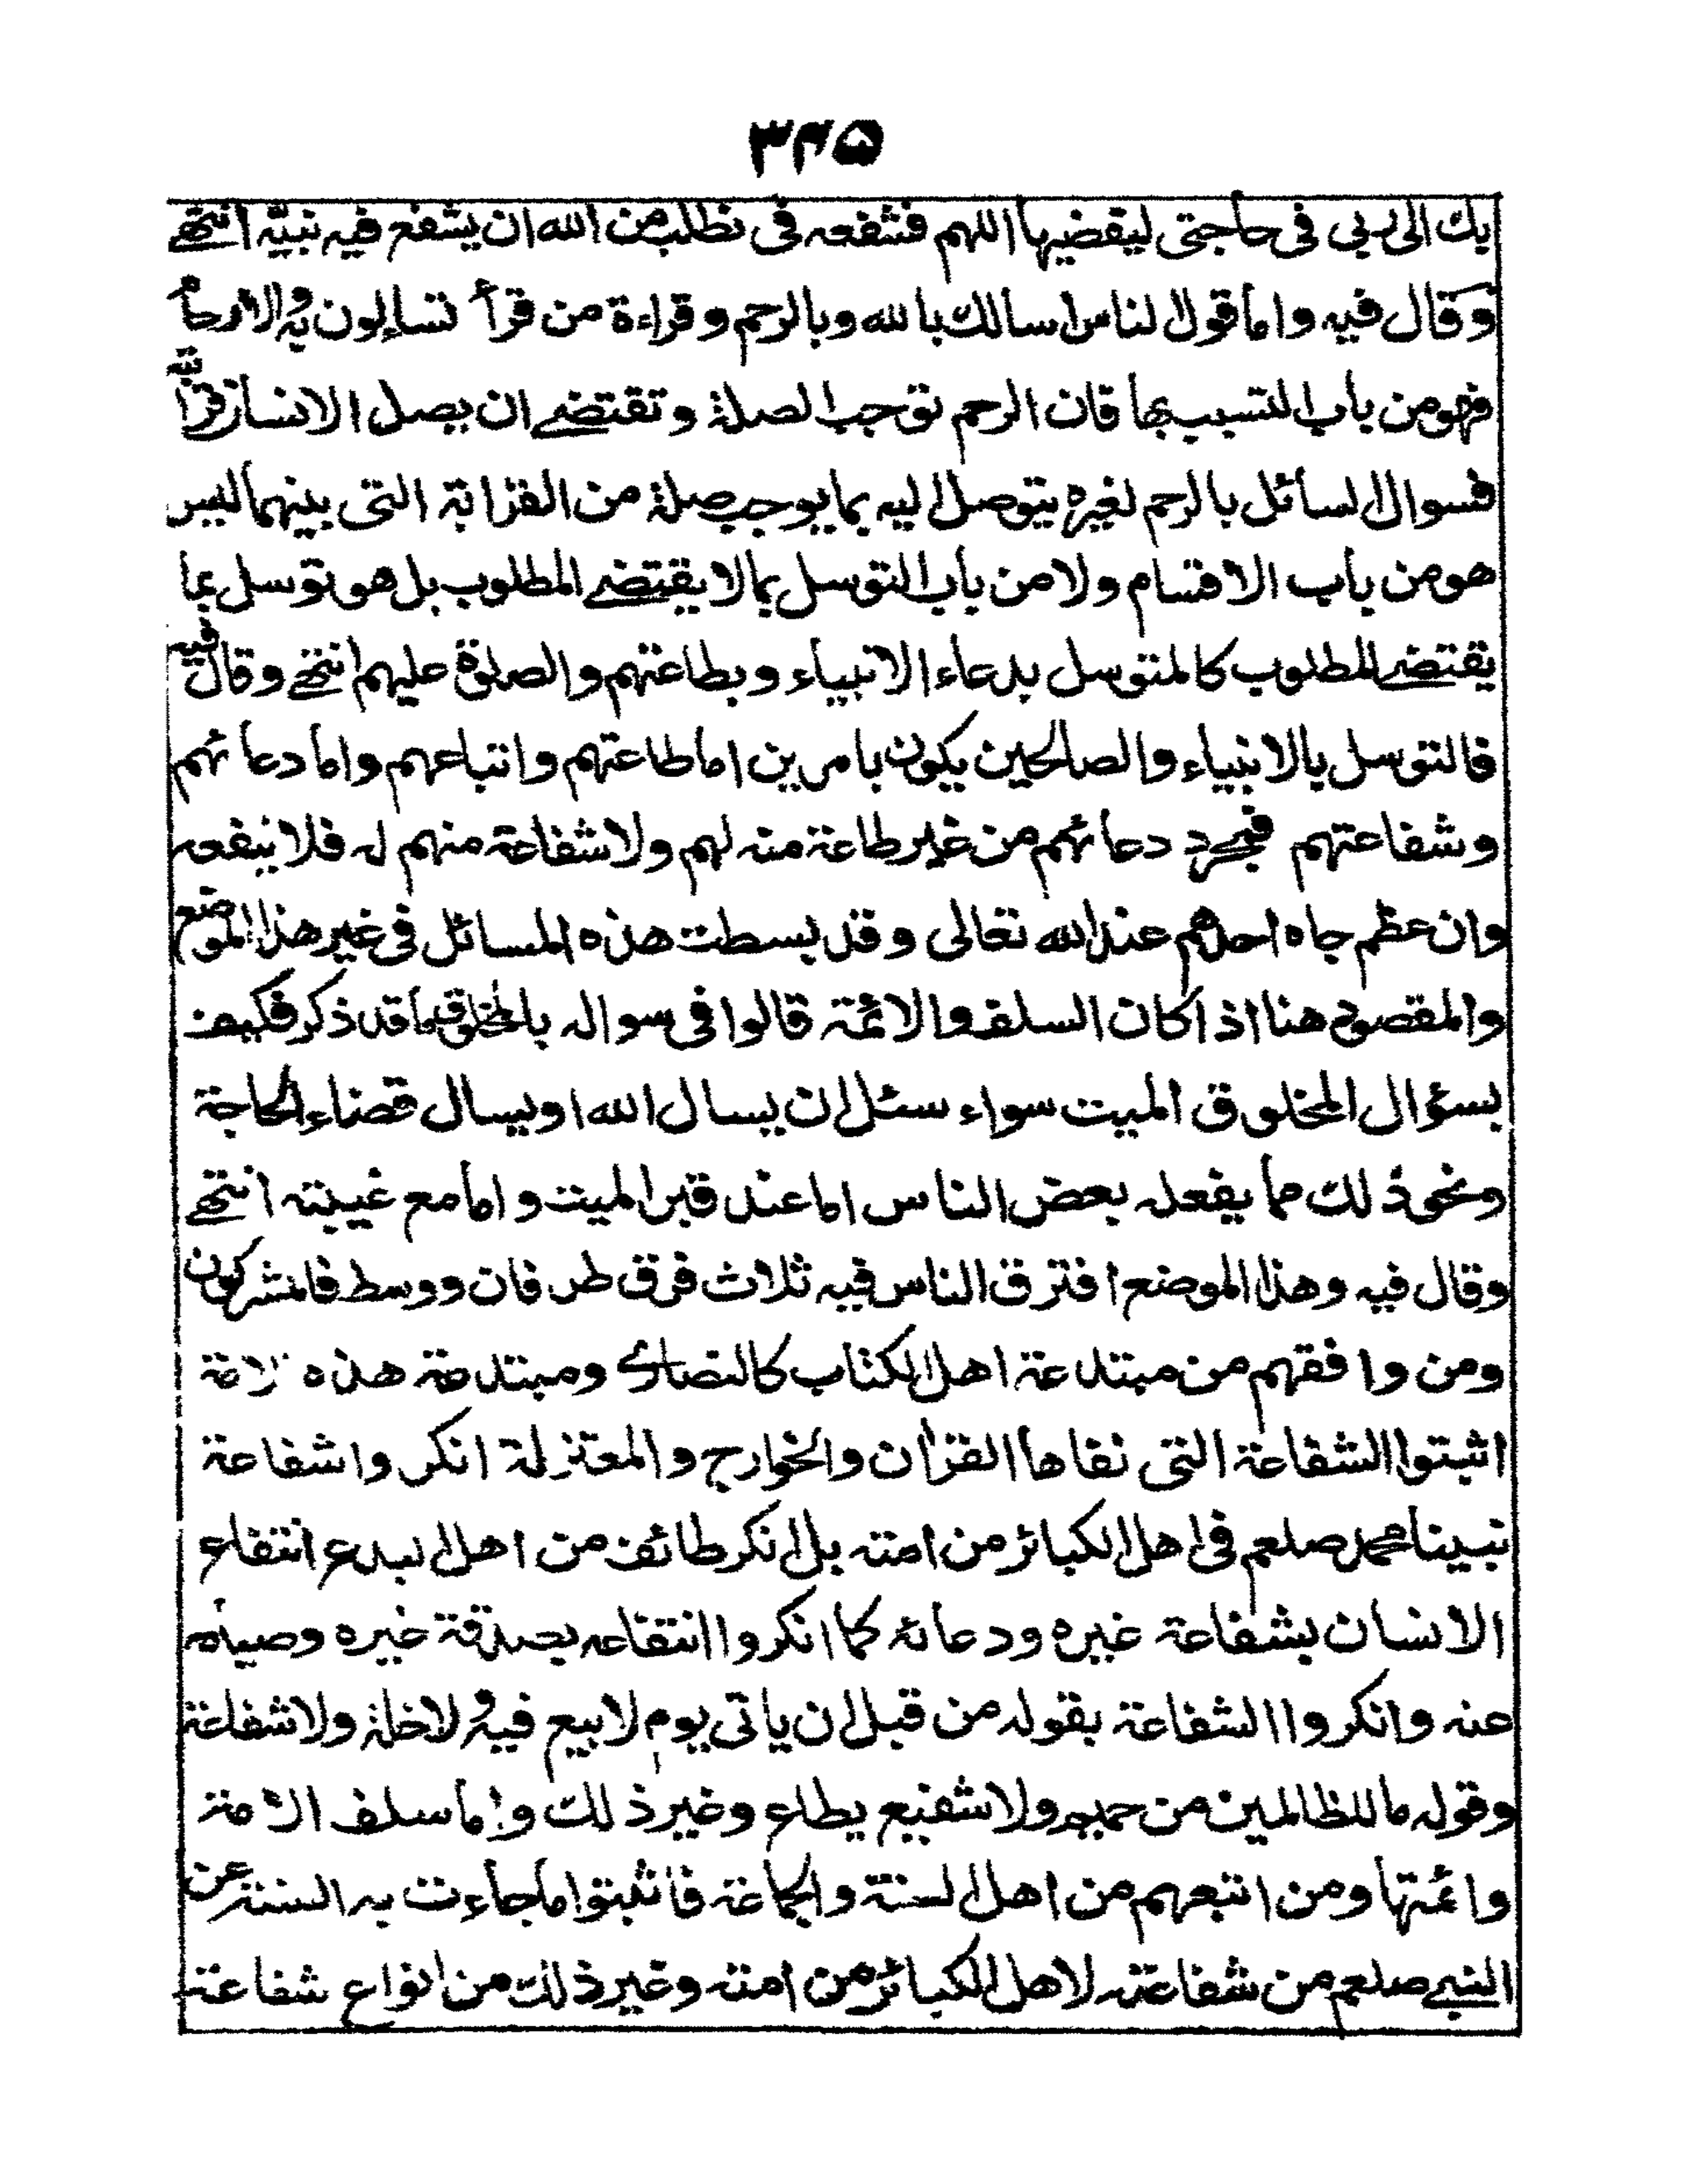 ۳۴۵
بك الى ربى فى حاجتى ليقضيها اللهم فشفعه فى نطلب من الله ان يشفع فيه نبيّه انتهے
وقال فيه واما قول الناس اسالك بالله وبالرحم وقراءة من قرأ تساءلون به والارحام
فهو من باب التسبب بها فان الرحم توجب الصلة وتقتضے ان يصل الانسان قرابته
فسوال السائل بالرحم لغيره يتوصل اليه بما يوجب صلة من القرابة التى بينهما ليس
هو من باب الاقسام ولا من باب التوسل بما لا يقتضے المطلوب بل هو توسل بما
يقتضے المطلوب كالمتوسل بدعاء الانبياء وبطاعتهم والصلوة عليهم انتهے وقال فيه
فالتوسل بالانبياء والصالحين يكون بامرين اما طاعتهم واتباعهم واما دعائهم
وشفاعتهم فبمجرد دعائهم من غير طاعة منه لهم ولا شفاعة منهم له فلا ينفعه
وان عظم جاه احدهم عند الله تعالى وقد بسطت هذه المسائل فى غير هذا الموضع
والمقصود هنا اذا كان السلف والائمة قالوا فى سواله بالمخلوق ما قد ذكر فكيف
بسؤال المخلوق الميت سواء سئل ان يسال الله او يسال قضاء الحاجة
ونحو ذلك مما يفعله بعض الناس اما عند قبر الميت واما مع غيبته انتهے
وقال فيه وهذا الموضع افترق الناس فيه ثلاث فرق طرفان ووسط فالمشركون
ومن وافقهم من مبتدعة اهل الكتاب كالنصارى ومبتدعة هذه الامة
اثبتوا الشفاعة التى نفاها القرأن والخوارج والمعتزلة انكروا شفاعة
نبينا محمد صلعم فى اهل الكبائر من امته بل انكر طائف من اهل البدع انتفاع
الانسان بشفاعة غيره ودعائه كما انكروا انتفاعه بصدقة غيره وصيامه
عنه وانكروا الشفاعة بقوله من قبل ان ياتى يوم لا بيع فيه ولا خلة ولا شفاعة
وقوله ما للظالمين من حميم ولا شفيع يطاع وغير ذلك واما سلف الامة
وائمتها ومن اتبعهم من اهل السنة والجماعة فاثبتوا ما جاءت به السنة عن
النبے صلعم من شفاعته لاهل الكبائر من امته وغير ذلك من انواع شفاعته